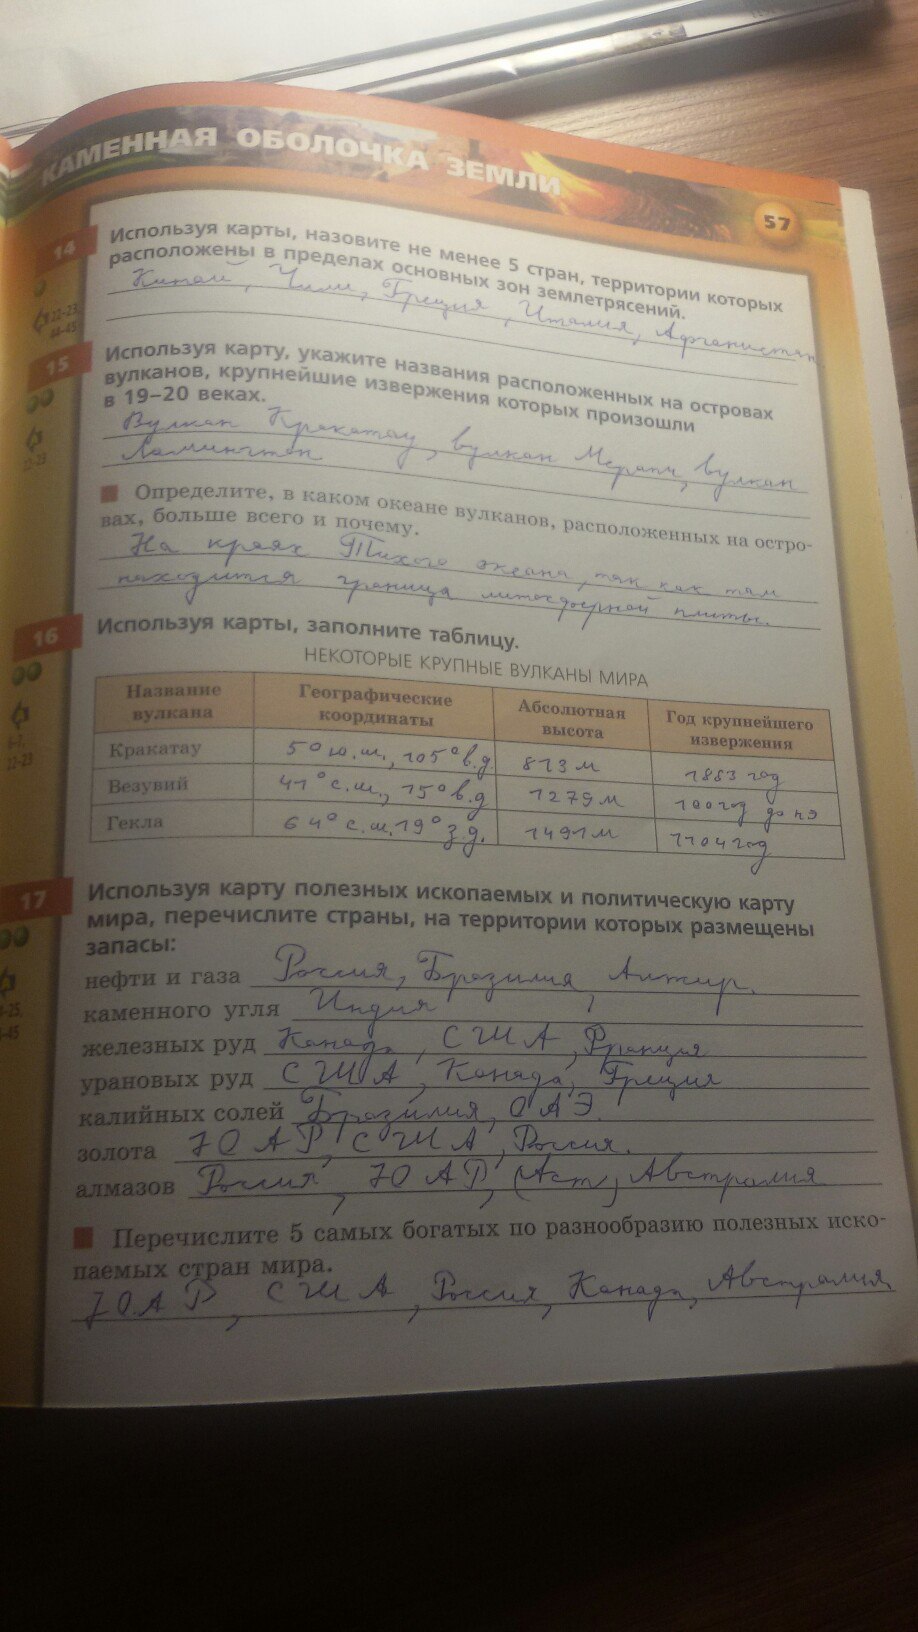 КАМЕННАЯ ОБОЛОЧКА ЗЕМЛИ
57
14
Используя карты, назовите не менее 5 стран, территории которых
расположены в пределах основных зон землетрясений.
22-23,
44-45
Китай, Чили, Греция, Италия, Афганистан
15
Используя карту, укажите названия расположенных на островах
вулканов, крупнейшие извержения которых произошли
в 19–20 веках.
22-23
Вулкан Кракатау, вулкан Мерапи, вулкан
Ламингтон
Определите, в каком океане вулканов, расположенных на остро-
вах, больше всего и почему.
На краях Тихого океана, так как там
находится граница литосферной плиты.
16
Используя карты, заполните таблицу.
6-7,
22-23
НЕКОТОРЫЕ КРУПНЫЕ ВУЛКАНЫ МИРА
Название вулкана Географические координаты Абсолютная высота Год крупнейшего извержения
Кракатау 5° ю.ш., 105° в.д 813 м 1883 год
Везувий 41° с.ш., 15° в.д 1279 м 100 год до нэ
Гекла 64° с.ш. 19° з.д. 1491 м 1104 год
17
Используя карту полезных ископаемых и политическую карту
мира, перечислите страны, на территории которых размещены
запасы:
нефти и газа Россия, Бразилия, Алжир.
каменного угля Индия
железных руд Канада, США, Франция
урановых руд США, Канада, Греция
калийных солей Бразилия, ОАЭ.
золота ЮАР, США, Россия.
алмазов Россия, ЮАР, Австралия
Перечислите 5 самых богатых по разнообразию полезных иско-
паемых стран мира.
ЮАР, США, Россия, Канада, Австралия